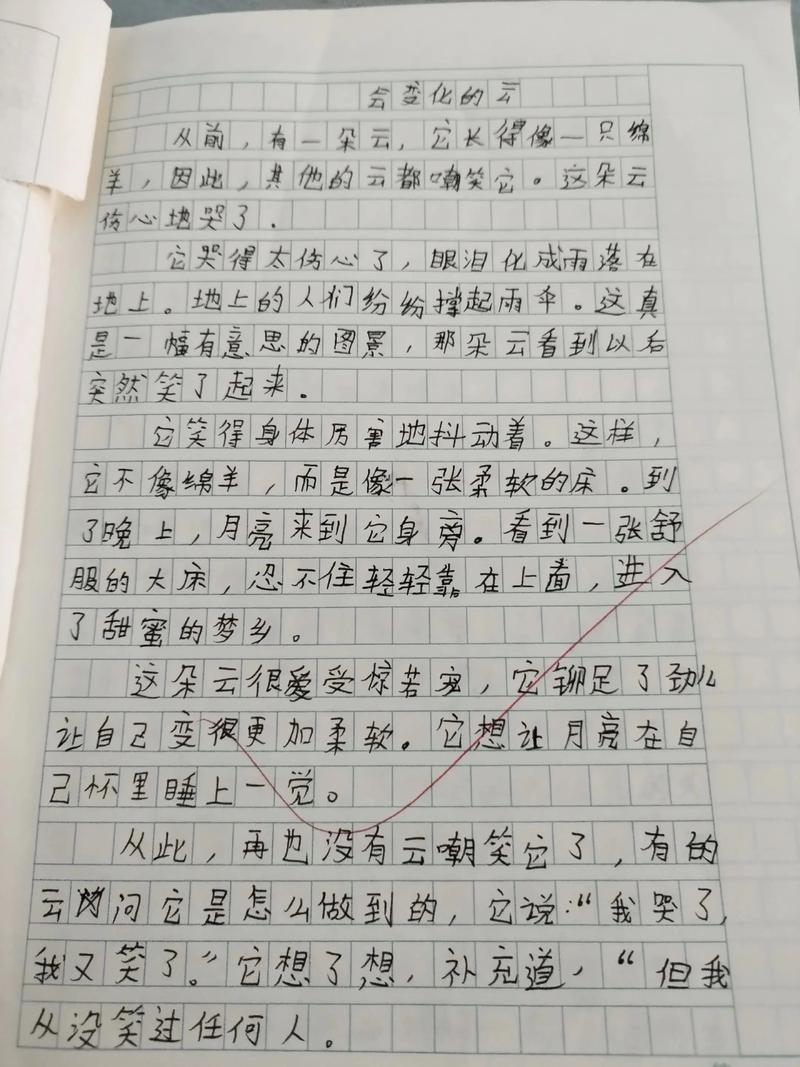 会变化的云
从前，有一朵云，它长得像一只绵
羊，因此，其他的云都嘲笑它。这朵云
伤心地哭了．
它哭得太伤心了，眼泪化成雨落在
地上。地上的人们纷纷撑起雨伞。这真
是一幅有意思的图景，那朵云看到以后
突然笑了起来．
它笑得身体厉害地抖动着。这样，
它不像绵羊，而是像一张柔软的床。到
了晚上，月亮来到它身旁。看到一张舒
服的大床，忍不住轻轻靠在上面，进入
了甜蜜的梦乡。
这朵云很爱受惊若宠，它铆足了劲儿
让自己变得更加柔软。它想让月亮在自
己怀里睡上一觉。
从此，再也没有云嘲笑它了，有的
云问它是怎么做到的，它说：“我哭了，
我又笑了。”它想了想，补充道，“但我
从没笑过任何人。